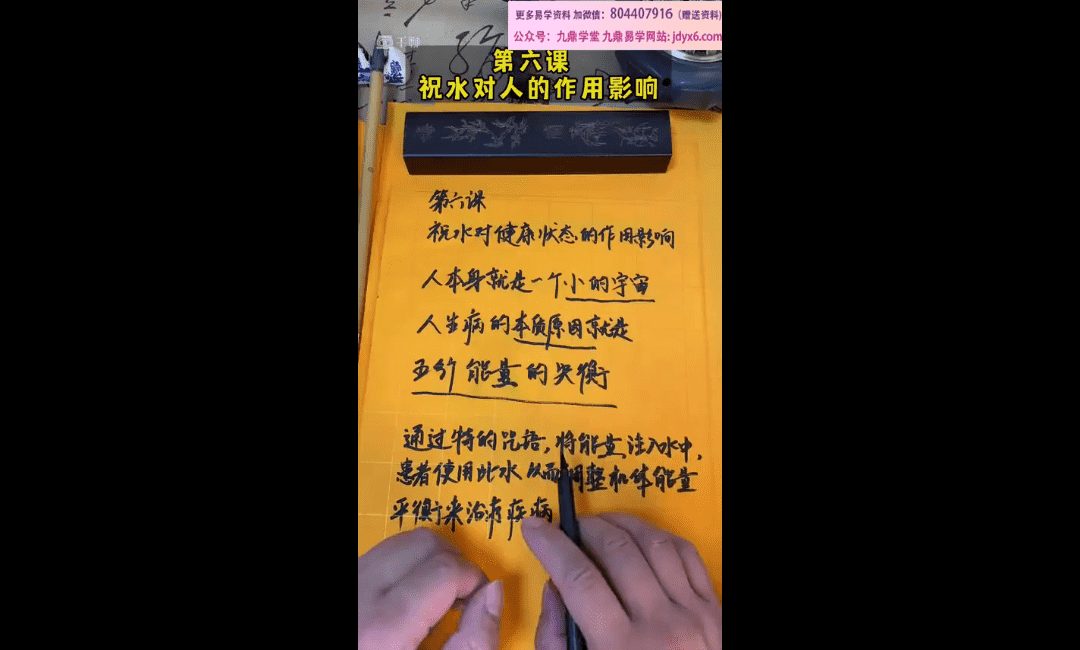 更多易学资料 加微信：804407916（赠送资料）
公众号：九鼎学堂 九鼎易学网站: jdyx6.com
千聊
第六课
祝水对人的作用影响
第六课
祝水对健康状态的作用影响
人本身就是一个小的宇宙
人生病的本质原因就是
五行能量的失衡
通过特的咒语，将能量注入水中，
患者使用此水 从而调整机体能量
平衡来治疗疾病